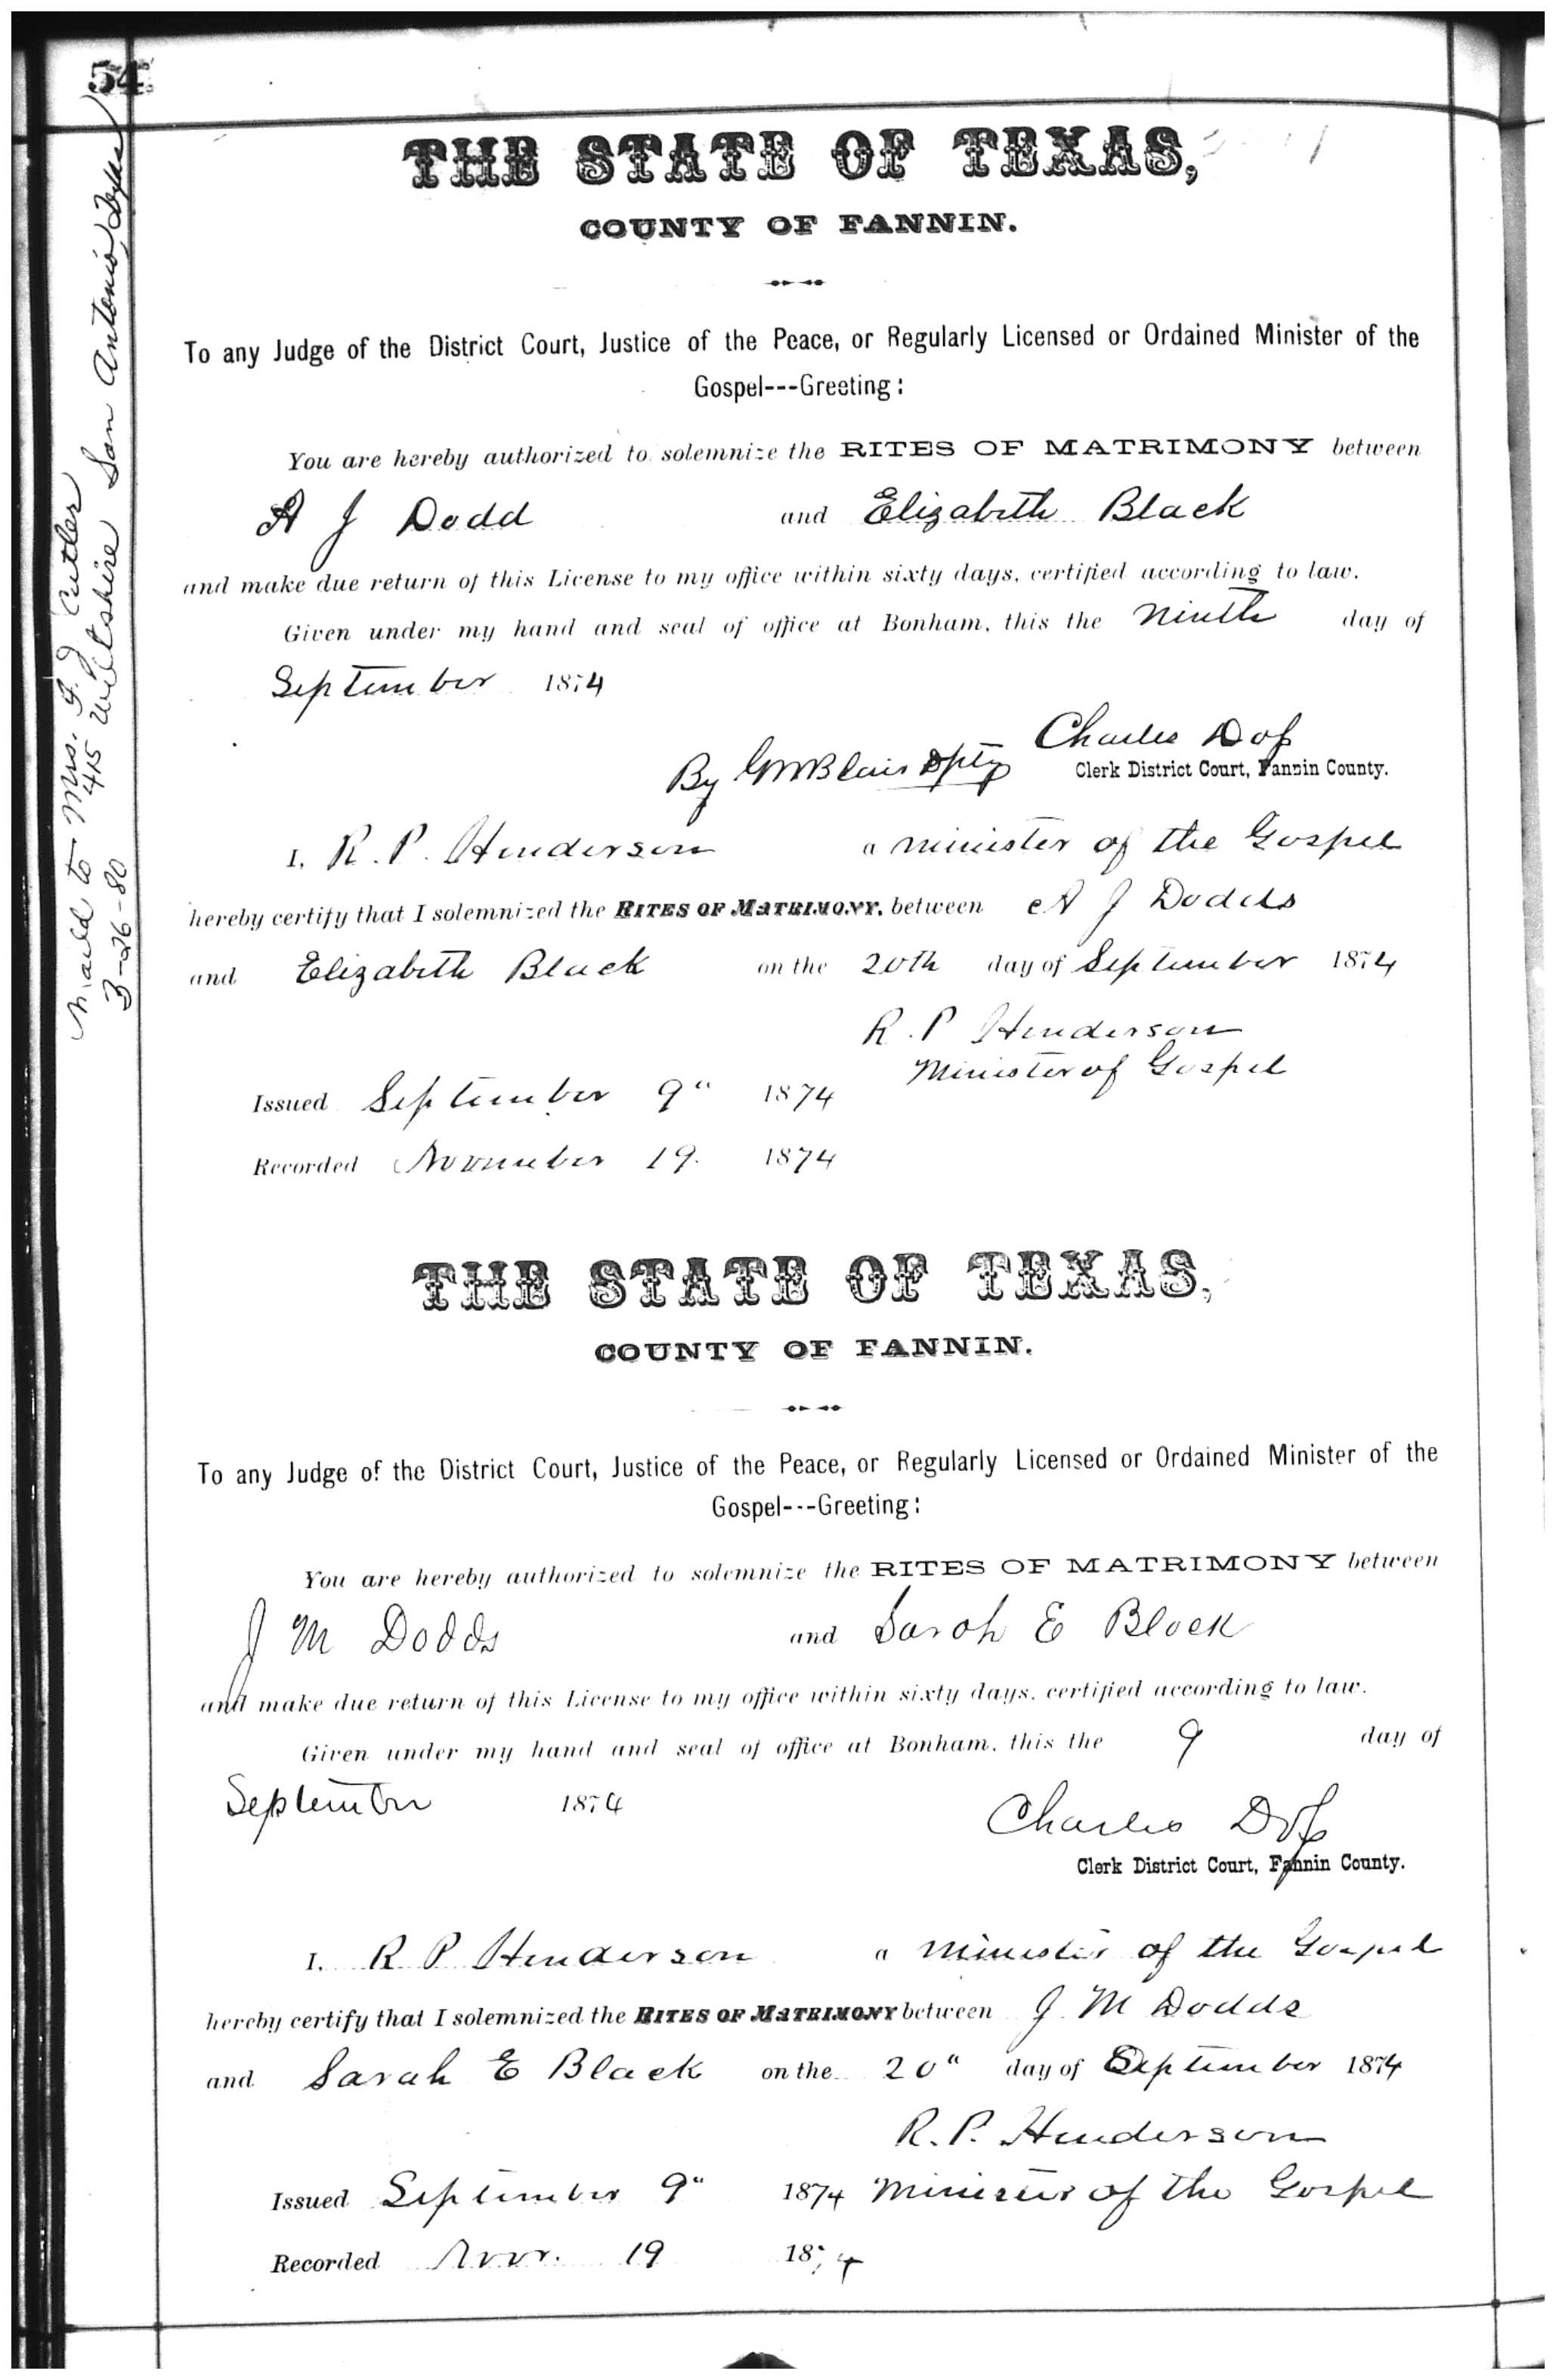 54
THE STATE OF TEXAS,
COUNTY OF FANNIN.
To any Judge of the District Court, Justice of the Peace, or Regularly Licensed or Ordained Minister of the
Gospel---Greeting:
You are hereby authorized to solemnize the RITES OF MATRIMONY between
A J Dodd and Elizabeth Black
and make due return of this License to my office within sixty days, certified according to law.
Given under my hand and seal of office at Bonham, this the Ninth day of
September 1874
Charles Doss
By GMBlair Dpty Clerk District Court, Fannin County.
I, R. P. Henderson a minister of the Gospel
hereby certify that I solemnized the RITES OF MATRIMONY, between A J Dodds
and Elizabeth Black on the 20th day of September 1874
R. P Henderson
Minister of Gospel
Issued September 9" 1874
Recorded November 19. 1874
Maild to Mrs. I. J Cutler
415 Wiltshire San Antonio,
3-26-80
THE STATE OF TEXAS,
COUNTY OF FANNIN.
To any Judge of the District Court, Justice of the Peace, or Regularly Licensed or Ordained Minister of the
Gospel---Greeting:
You are hereby authorized to solemnize the RITES OF MATRIMONY between
J M Dodds and Sarah E Black
and make due return of this License to my office within sixty days, certified according to law.
Given under my hand and seal of office at Bonham, this the 9 day of
September 1874
Charles Doss
Clerk District Court, Fannin County.
I, R P Henderson a minister of the Gospel
hereby certify that I solemnized the RITES OF MATRIMONY between J. M Dodds
and Sarah E Black on the 20" day of September 1874
R. P. Henderson
Issued September 9" 1874 Minister of the Gospel
Recorded Nov. 19 1874